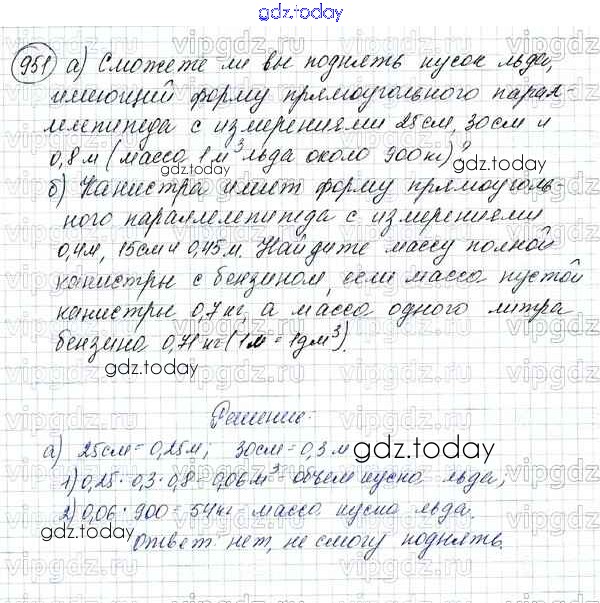 gdz.today
951 а) Сможете ли вы поднять кусок льда,
имеющий форму прямоугольного парал-
лелепипеда с измерениями 25см, 30см и
0,8 м (масса 1м³ льда около 900кг)?
gdz.today
б) Канистра имеет форму прямоуголь-
ного параллелепипеда с измерениями
0,4м, 15см и 0,45 м. Найдите массу полной
канистры с бензином, если масса пустой
канистры 0,7 кг, а масса одного литра
бензина 0,71 кг (1л = 1дм³).
gdz.today
Решение:
а) 25см = 0,25м; 30см = 0,3 м
gdz.today
1) 0,25 · 0,3 · 0,8 = 0,06 м³ - объем куска льда;
2) 0,06 · 900 = 54кг - масса куска льда.
Ответ: нет, не смогу поднять.